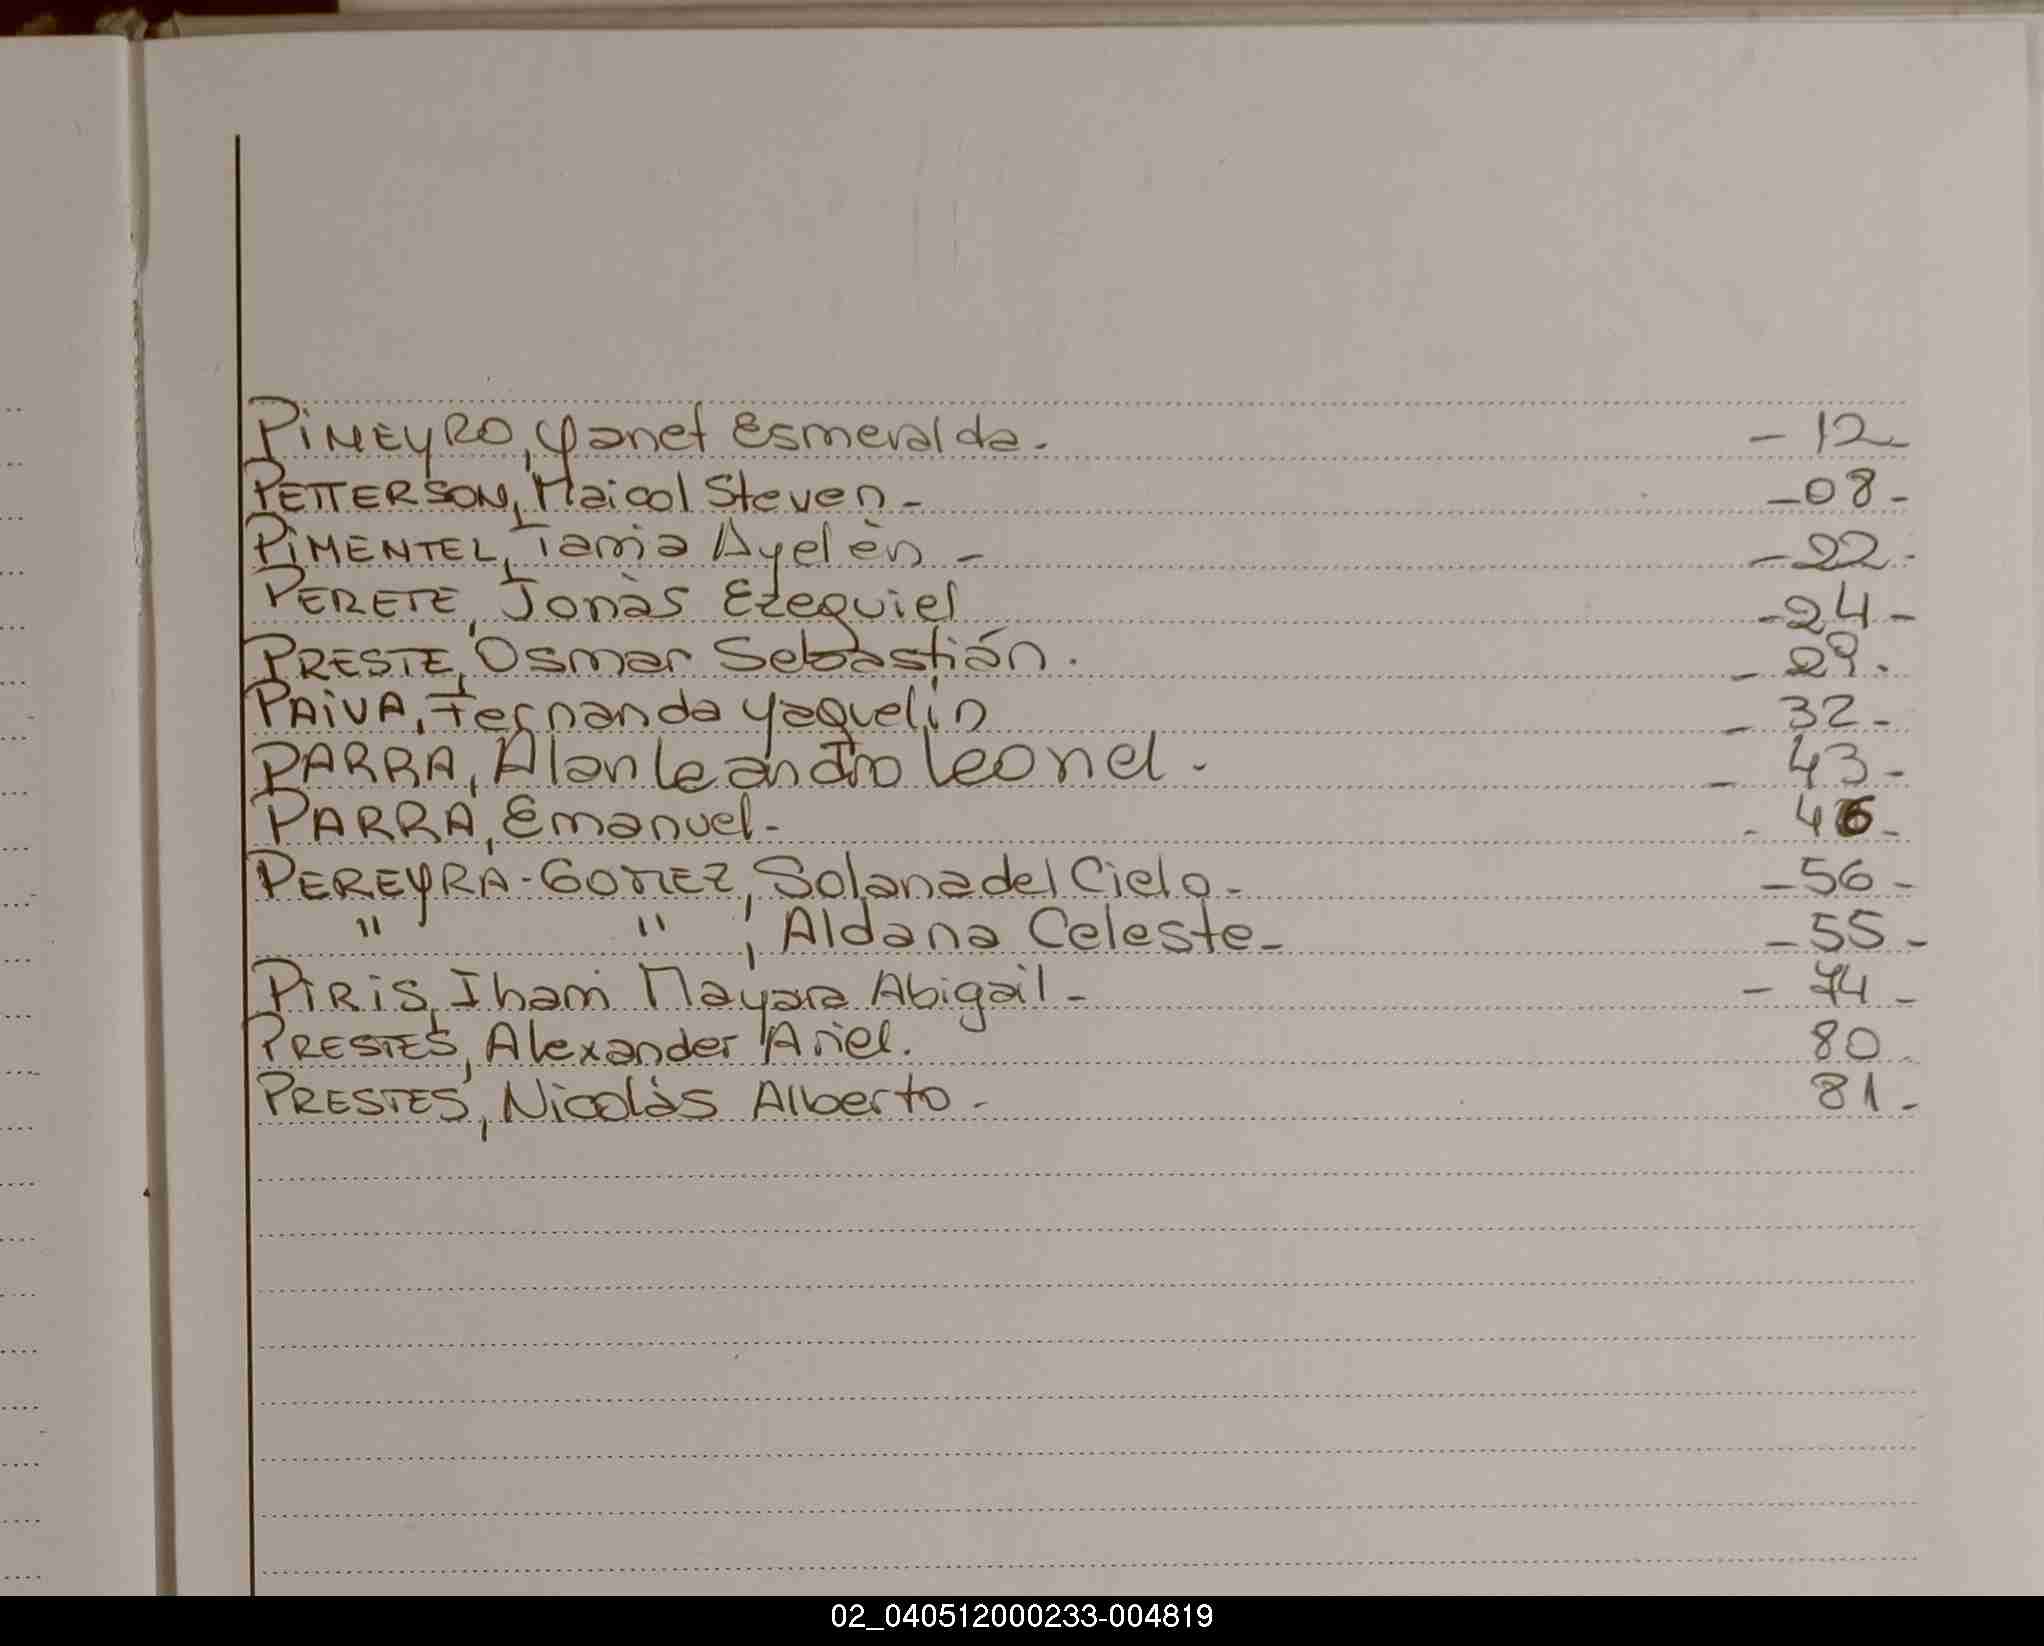 PiÑEYRO, Yanet Esmeralda. - 12 -
PETTERSON, Maicol Steven - - 08 -
PiMENTEL, Tania Ayelèn - - 22 -
PERETE, Jonàs Ezequiel - 24 -
PRESTE, Osmar Sebastián. - 29.
PAiVA, Fernanda yaquelin - 32 -
PARRA, Alan Leandro Leonel. - 43 -
PARRA, Emanuel - - 46 -
PEREYRA - GOMEZ, Solana del Cielo - - 56 -
" " , Aldana Celeste - - 55 -
PiRiS, Mayara Abigail - - 74 -
PRESTES, Alexander Ariel. 80 -
PRESTES, Nicolàs Alberto - 81 -
02_040512000233-004819